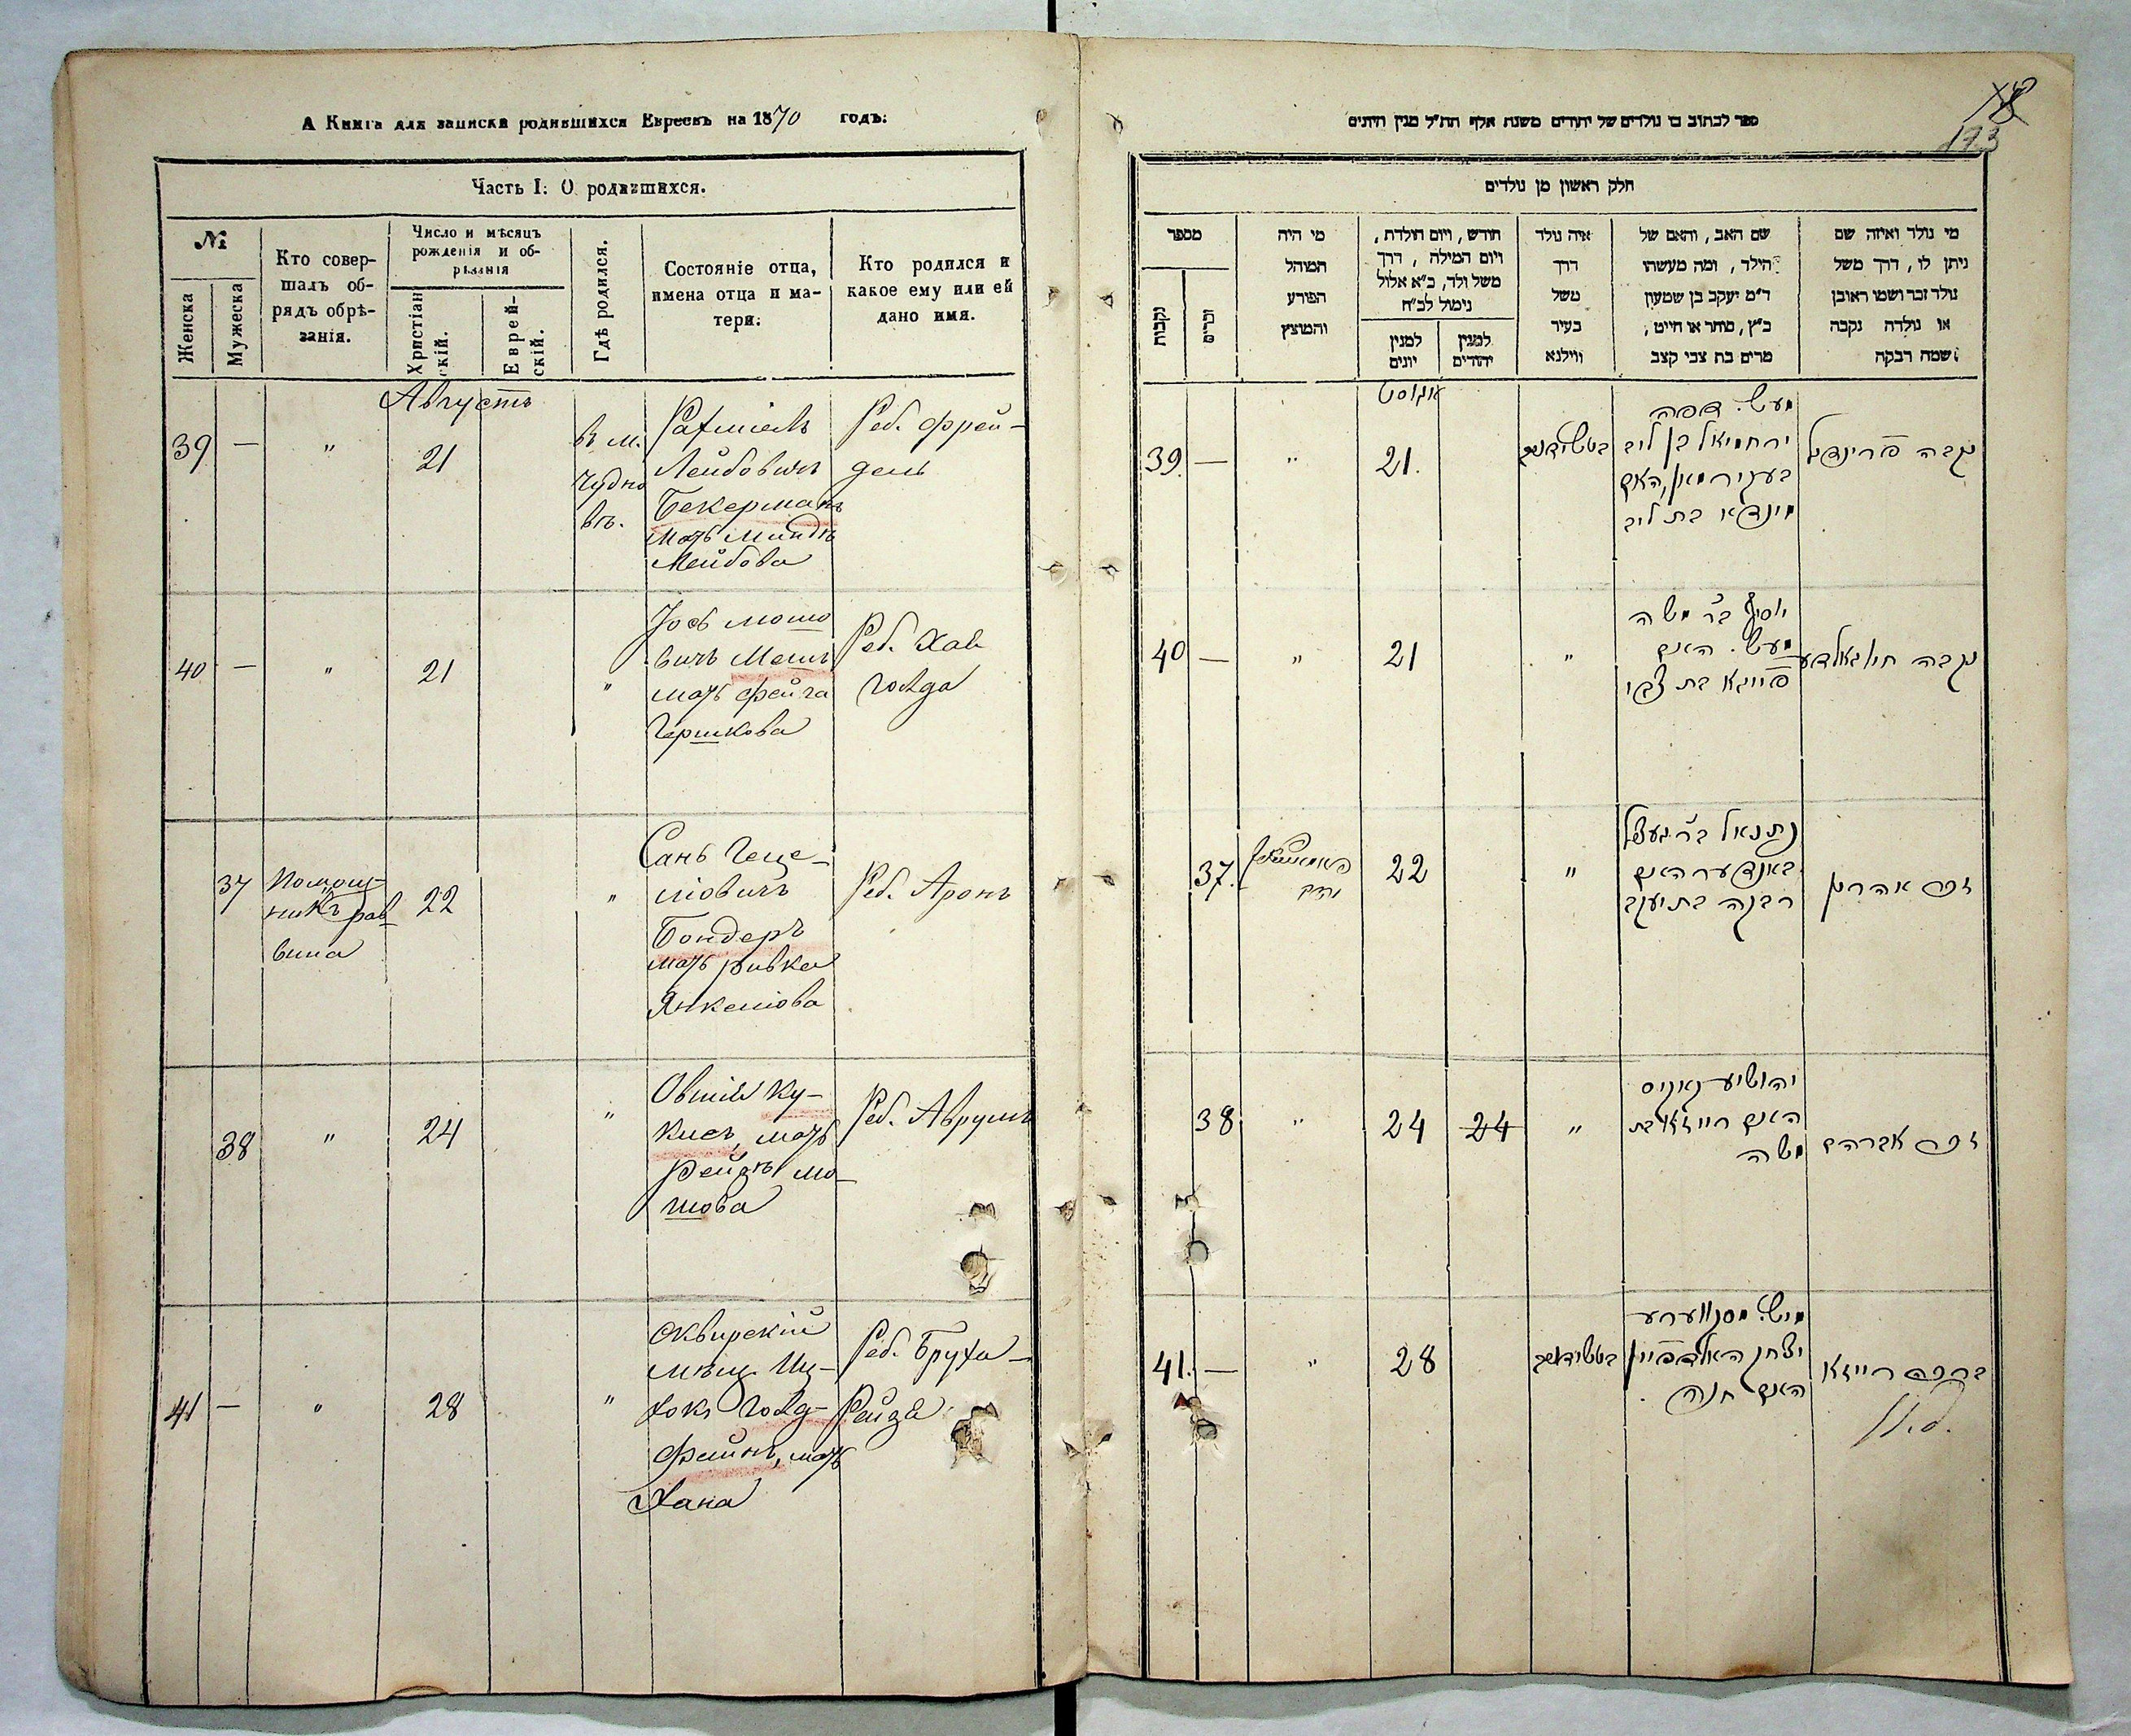 А Книга для записки родившихся Евреевъ на 1870 годъ:
Часть I: О родившихся.
№
Женска
Мужеска
Кто совер-
шалъ об-
рядъ обрѣ-
занія.
Число и мѣсяцъ
рожденія и об-
рѣзанія
Христіан
скій.
Еврей-
скій.
Гдѣ родился.
Состояніе отца,
имена отца и ма-
тери.
Кто родился и
какое ему или ей
дано имя.
Августъ
39 — " 21
въ м.
Чудно
вѣ.
Рахміель
Лейбовичъ
Бекерманъ
мать Миндя
Лейбова
Реб. Фрей-
дель
40 — " 21 "
Іось Мошо
вичъ
мать Фейга
Гершкова
Реб. Хая
Голда
37
Помощ-
никъ рав
вина
22 "
Сань Геце-
ліовичъ
Бондеръ
мать Ривка
Янкеліова
Реб. Аронъ
38 " 24 "
Овшій Ку-
кисъ, мать
Рейзя Мо-
шова
Реб. Аврумъ
41 — " 28 "
Сквирскій
мѣщ. Иц-
хокъ Голд-
файнъ, мать
Хана
Реб. Бруха-
Рейза
18
173
ספר לכתוב בו נולדים של יהודים משנת אלף תת״ל מנין היונים
חלק ראשון מן נולדים
מספר
נקבות
זכרים
מי היה
המוהל
הפורע
והמוצץ
חודש, ויום הולדת,
ויום המילה, דרך
משל ולד, כ״א אלול
נימול לכ״ח
למנין
יונים
למנין
יהודים
איה נולד
דרך
משל
בעיר
ווילנא
שם האב, והאם של
הילד, ומה מעשהו
ד״מ יעקב בן שמעון
כ״ץ, סוחר או חייט,
מרים בת צבי קצב
מי נולד ואיזה שם
ניתן לו, דרך משל
נולד זכר ושמו ראובן
או נולדה נקבה
ושמה רבקה
אוגוסט
39 — " 21.
ירחמיאל בן ליב
בעקירמאן, האם
מינדא בת ליב
נקבה פריידיל
40 — " 21 "
יוסף ב״ר משה
האם
פייגא בת צבי
נקבה חי׳ גאלדע
37. 22 "
נתנאל ב״ר געציל
באנדער האם
רבקה בת יעקב
זכר אהרון
38 " 24 24 "
יהושיע קוקיס
האם רייזא בת
משה
זכר אברהם
41. — " 28
יצחק האלדפיין
האם חנה
ברכה רייזא